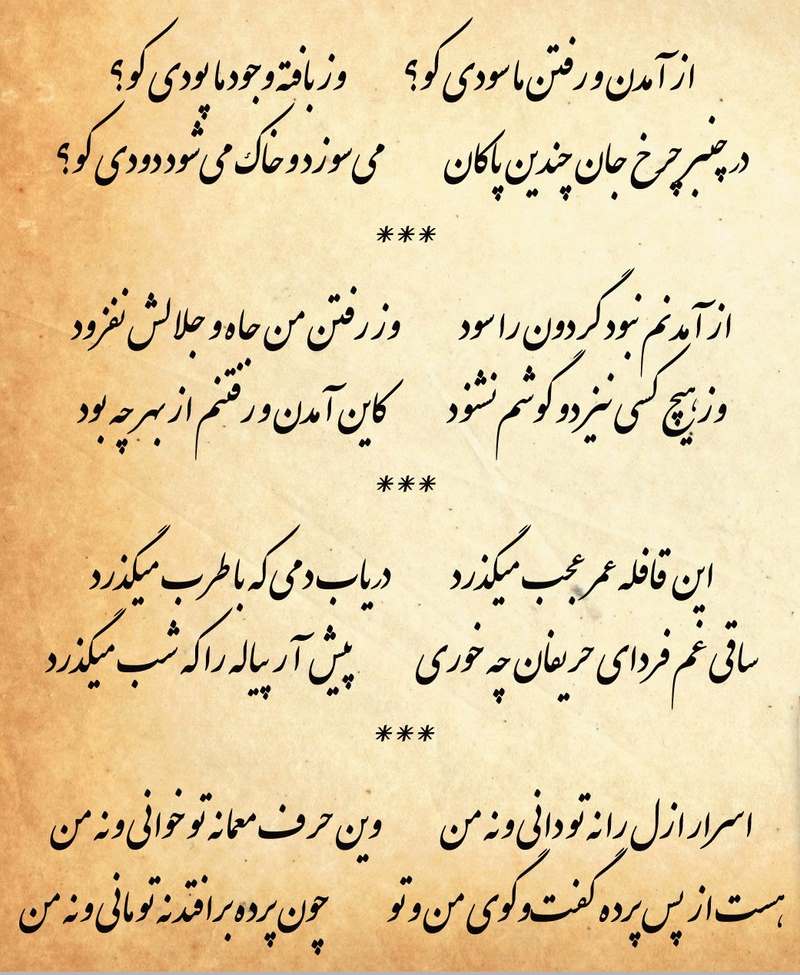 از آمدن و رفتن ما سودی کو؟ وز بافتهٔ وجود ما پودی کو؟
در چنبر چرخ جان چندین پاکان می سوزد و خاک می شود دودی کو؟
***
از آمدنم نبود گردون را سود وز رفتن من جاه و جلالش نفزود
وز هیچ کسی نیز دو گوشم نشنود کاین آمدن و رفتنم از بهر چه بود
***
این قافله عمر عجب میگذرد دریاب دمی که با طرب میگذرد
ساقی غم فردای حریفان چه خوری پیش آر پیاله را که شب میگذرد
***
اسرار ازل را نه تو دانی و نه من وین حرف معما نه تو خوانی و نه من
هست از پس پرده گفت و گوی من و تو چون پرده برافتد نه تو مانی و نه من